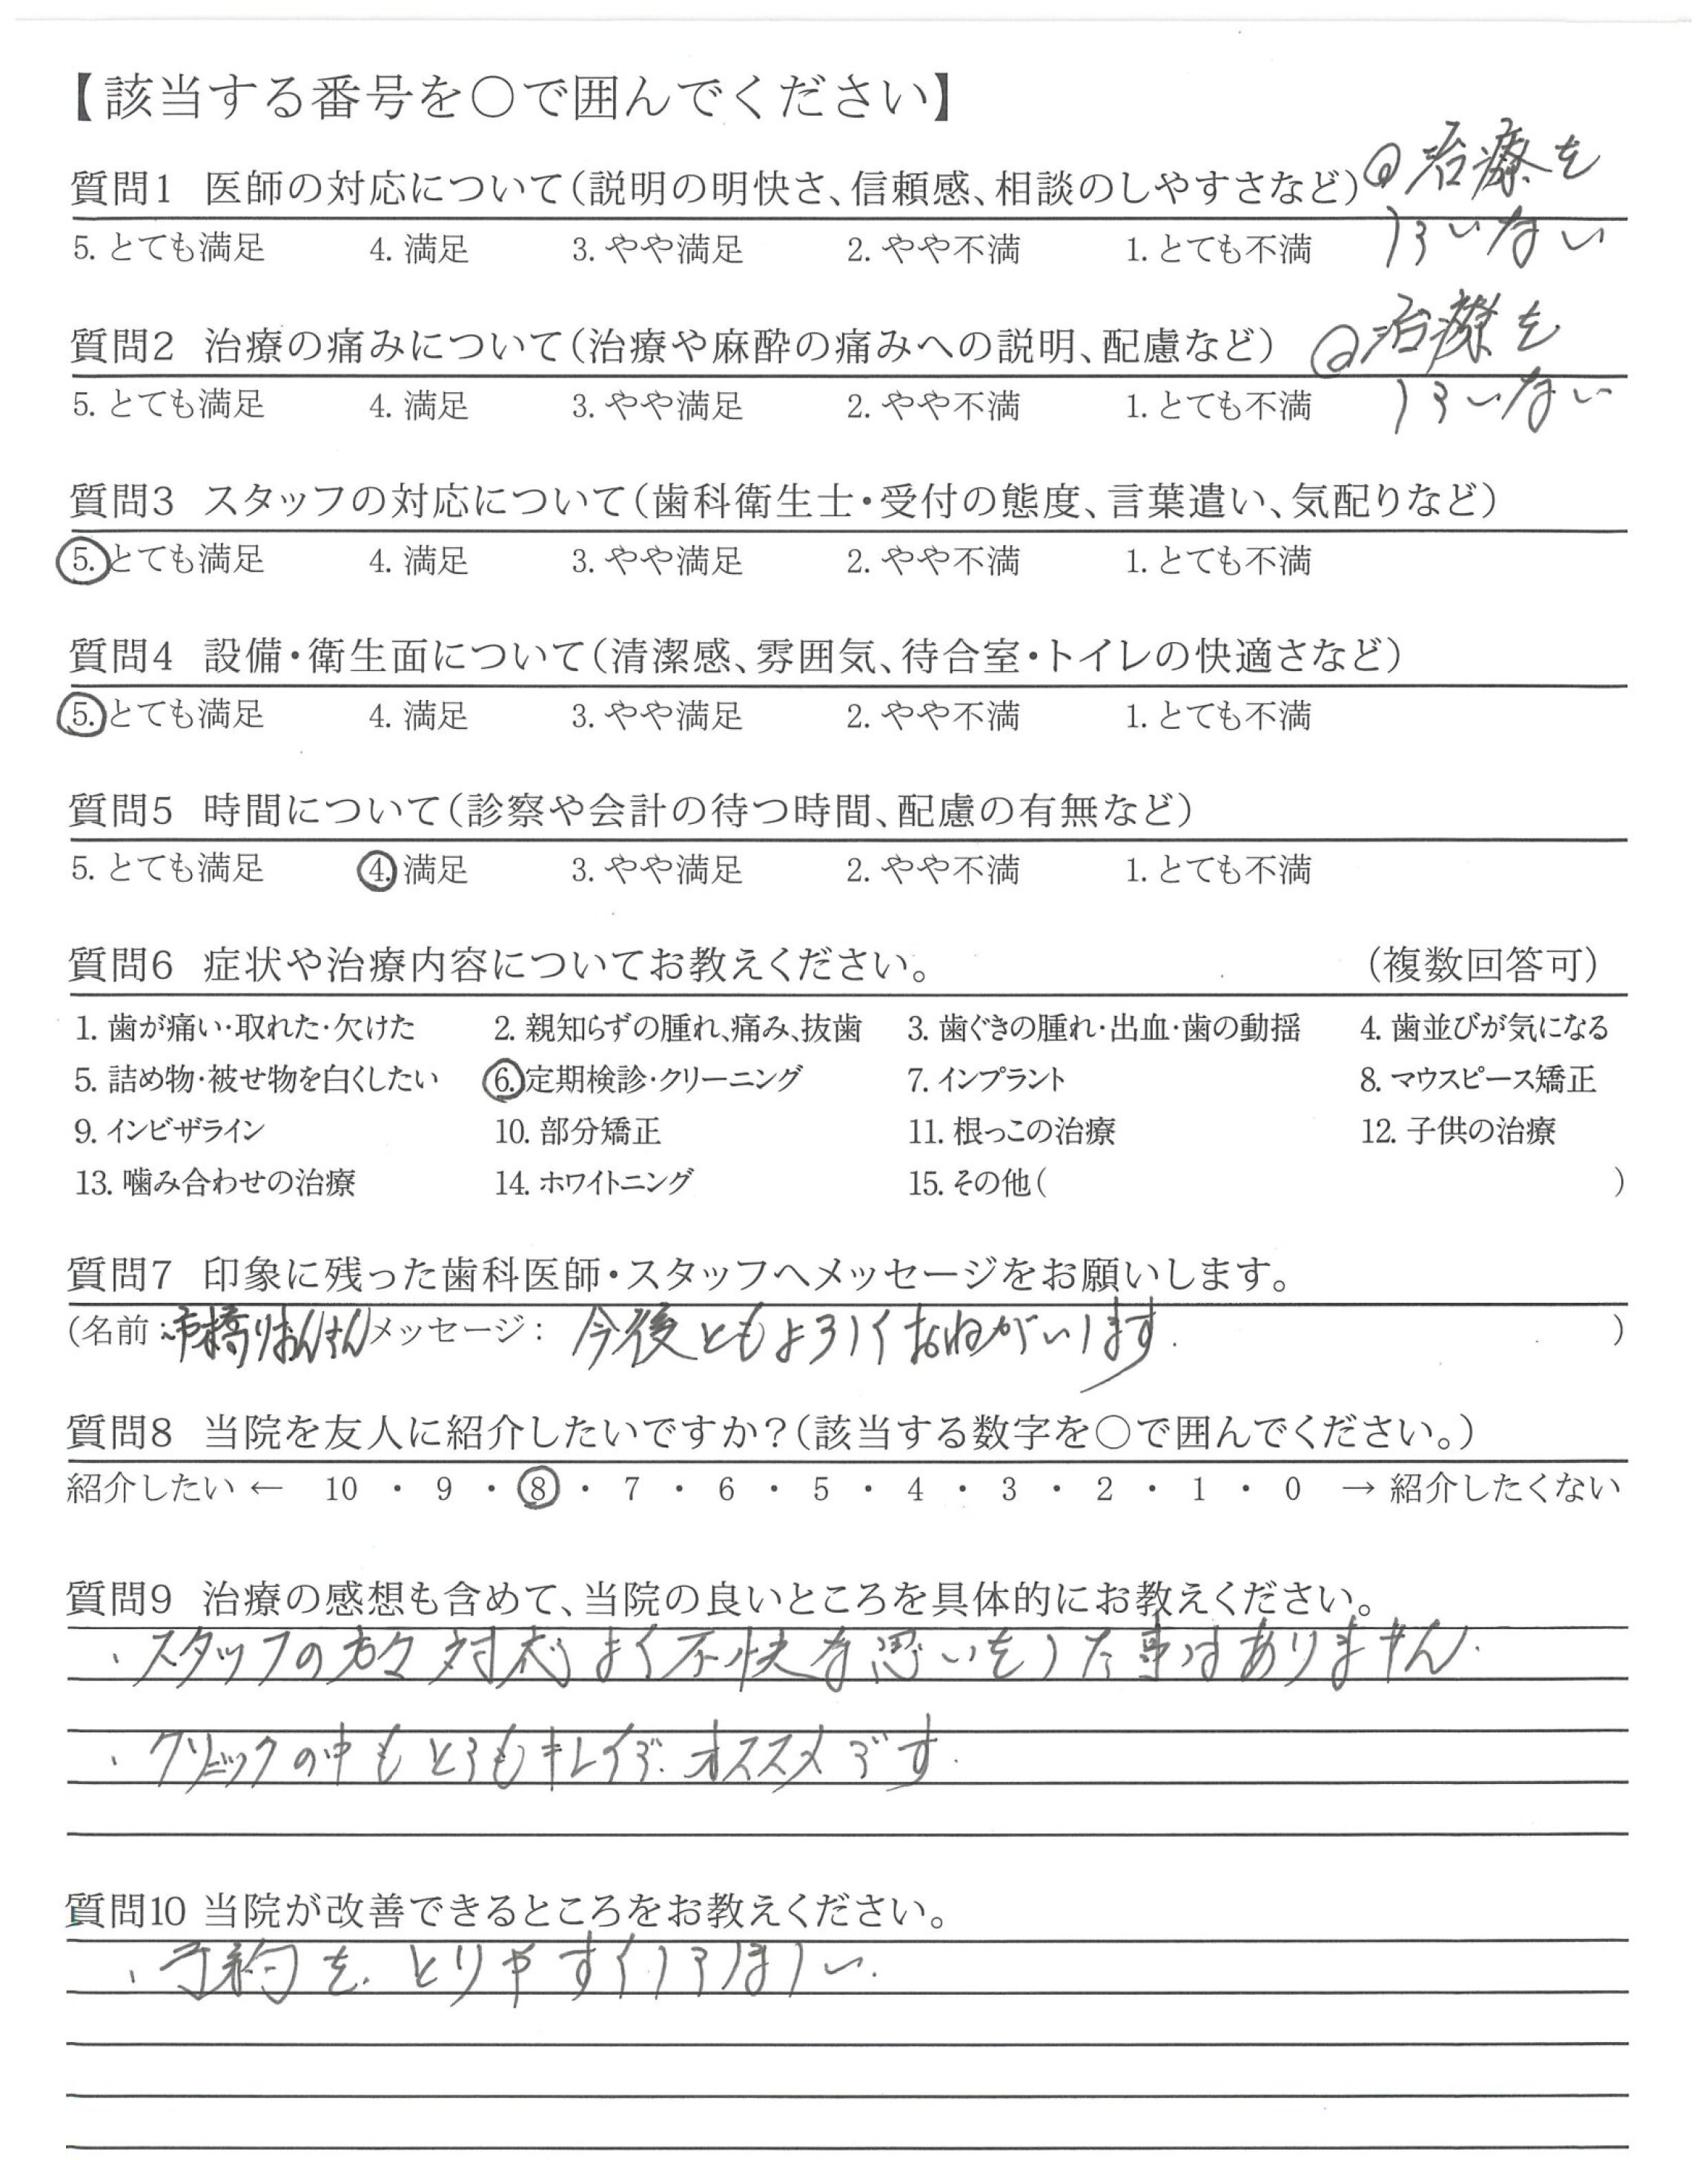 【該当する番号を○で囲んでください】
質問1 医師の対応について(説明の明快さ、信頼感、相談のしやすさなど) @治療を
5. とても満足 4. 満足 3. やや満足 2. やや不満 1. とても不満 していない
質問2 治療の痛みについて(治療や麻酔の痛みへの説明、配慮など) @治療を
5. とても満足 4. 満足 3. やや満足 2. やや不満 1. とても不満 していない
質問3 スタッフの対応について(歯科衛生士・受付の態度、言葉遣い、気配りなど)
5. とても満足 4. 満足 3. やや満足 2. やや不満 1. とても不満
質問4 設備・衛生面について(清潔感、雰囲気、待合室・トイレの快適さなど)
5. とても満足 4. 満足 3. やや満足 2. やや不満 1. とても不満
質問5 時間について(診察や会計の待つ時間、配慮の有無など)
5. とても満足 4. 満足 3. やや満足 2. やや不満 1. とても不満
質問6 症状や治療内容についてお教えください。 (複数回答可)
1. 歯が痛い・取れた・欠けた 2. 親知らずの腫れ、痛み、抜歯 3. 歯ぐきの腫れ・出血・歯の動揺 4. 歯並びが気になる
5. 詰め物・被せ物を白くしたい 6. 定期検診・クリーニング 7. インプラント 8. マウスピース矯正
9. インビザライン 10. 部分矯正 11. 根っこの治療 12. 子供の治療
13. 噛み合わせの治療 14. ホワイトニング 15. その他( )
質問7 印象に残った歯科医師・スタッフへメッセージをお願いします。
(名前:市橋りおんさん メッセージ: 今後ともよろしくおねがいします. )
質問8 当院を友人に紹介したいですか?(該当する数字を○で囲んでください。)
紹介したい ← 10 ・ 9 ・ 8 ・ 7 ・ 6 ・ 5 ・ 4 ・ 3 ・ 2 ・ 1 ・ 0 → 紹介したくない
質問9 治療の感想も含めて、当院の良いところを具体的にお教えください。
、スタッフの方々対応よく不快な思いをした事はありません.
、クリニックの中もとてもキレイで、オススメです.
質問10 当院が改善できるところをお教えください。
、予約を、とりやすくしてほしい.